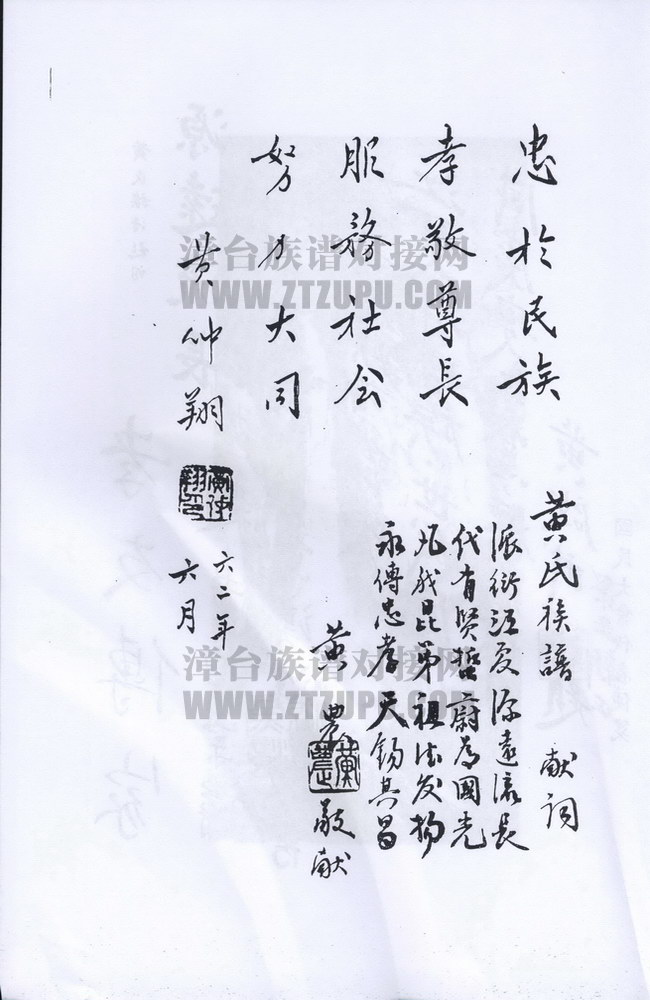 忠於民族
孝敬尊長
服務社会
努力大同
黄仲翔
六二年
六月
黄氏族譜 献词
派衍江夏源遠流長
代有賢哲蔚為國光
凡我昆弟祖法发扬
永傳忠孝天錫其昌
黄農敬献
漳台族谱对接网
WWW.ZTZUPU.COM
漳台族谱对接网
WWW.ZTZUPU.COM